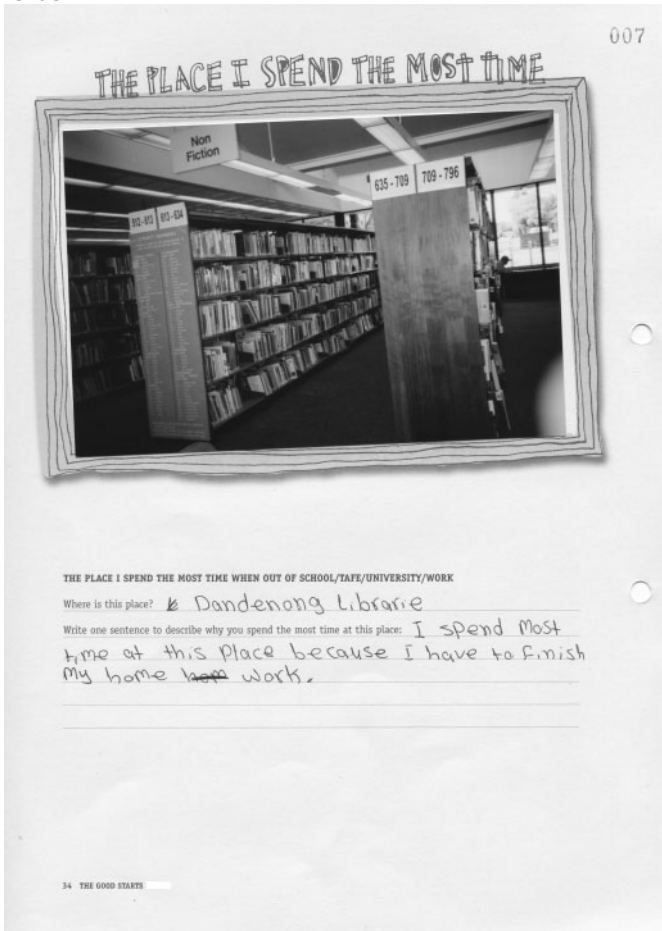 007
THE PLACE I SPEND THE MOST TIME
Non
Fiction
635-709 709-796
613-634
THE PLACE I SPEND THE MOST TIME WHEN OUT OF SCHOOL/TAFE/UNIVERSITY/WORK
Where is this place? Dandenong Librarie
Write one sentence to describe why you spend the most time at this place: I spend Most
time at this Place because I have to finish
My home work.
34 THE GOOD STARTS